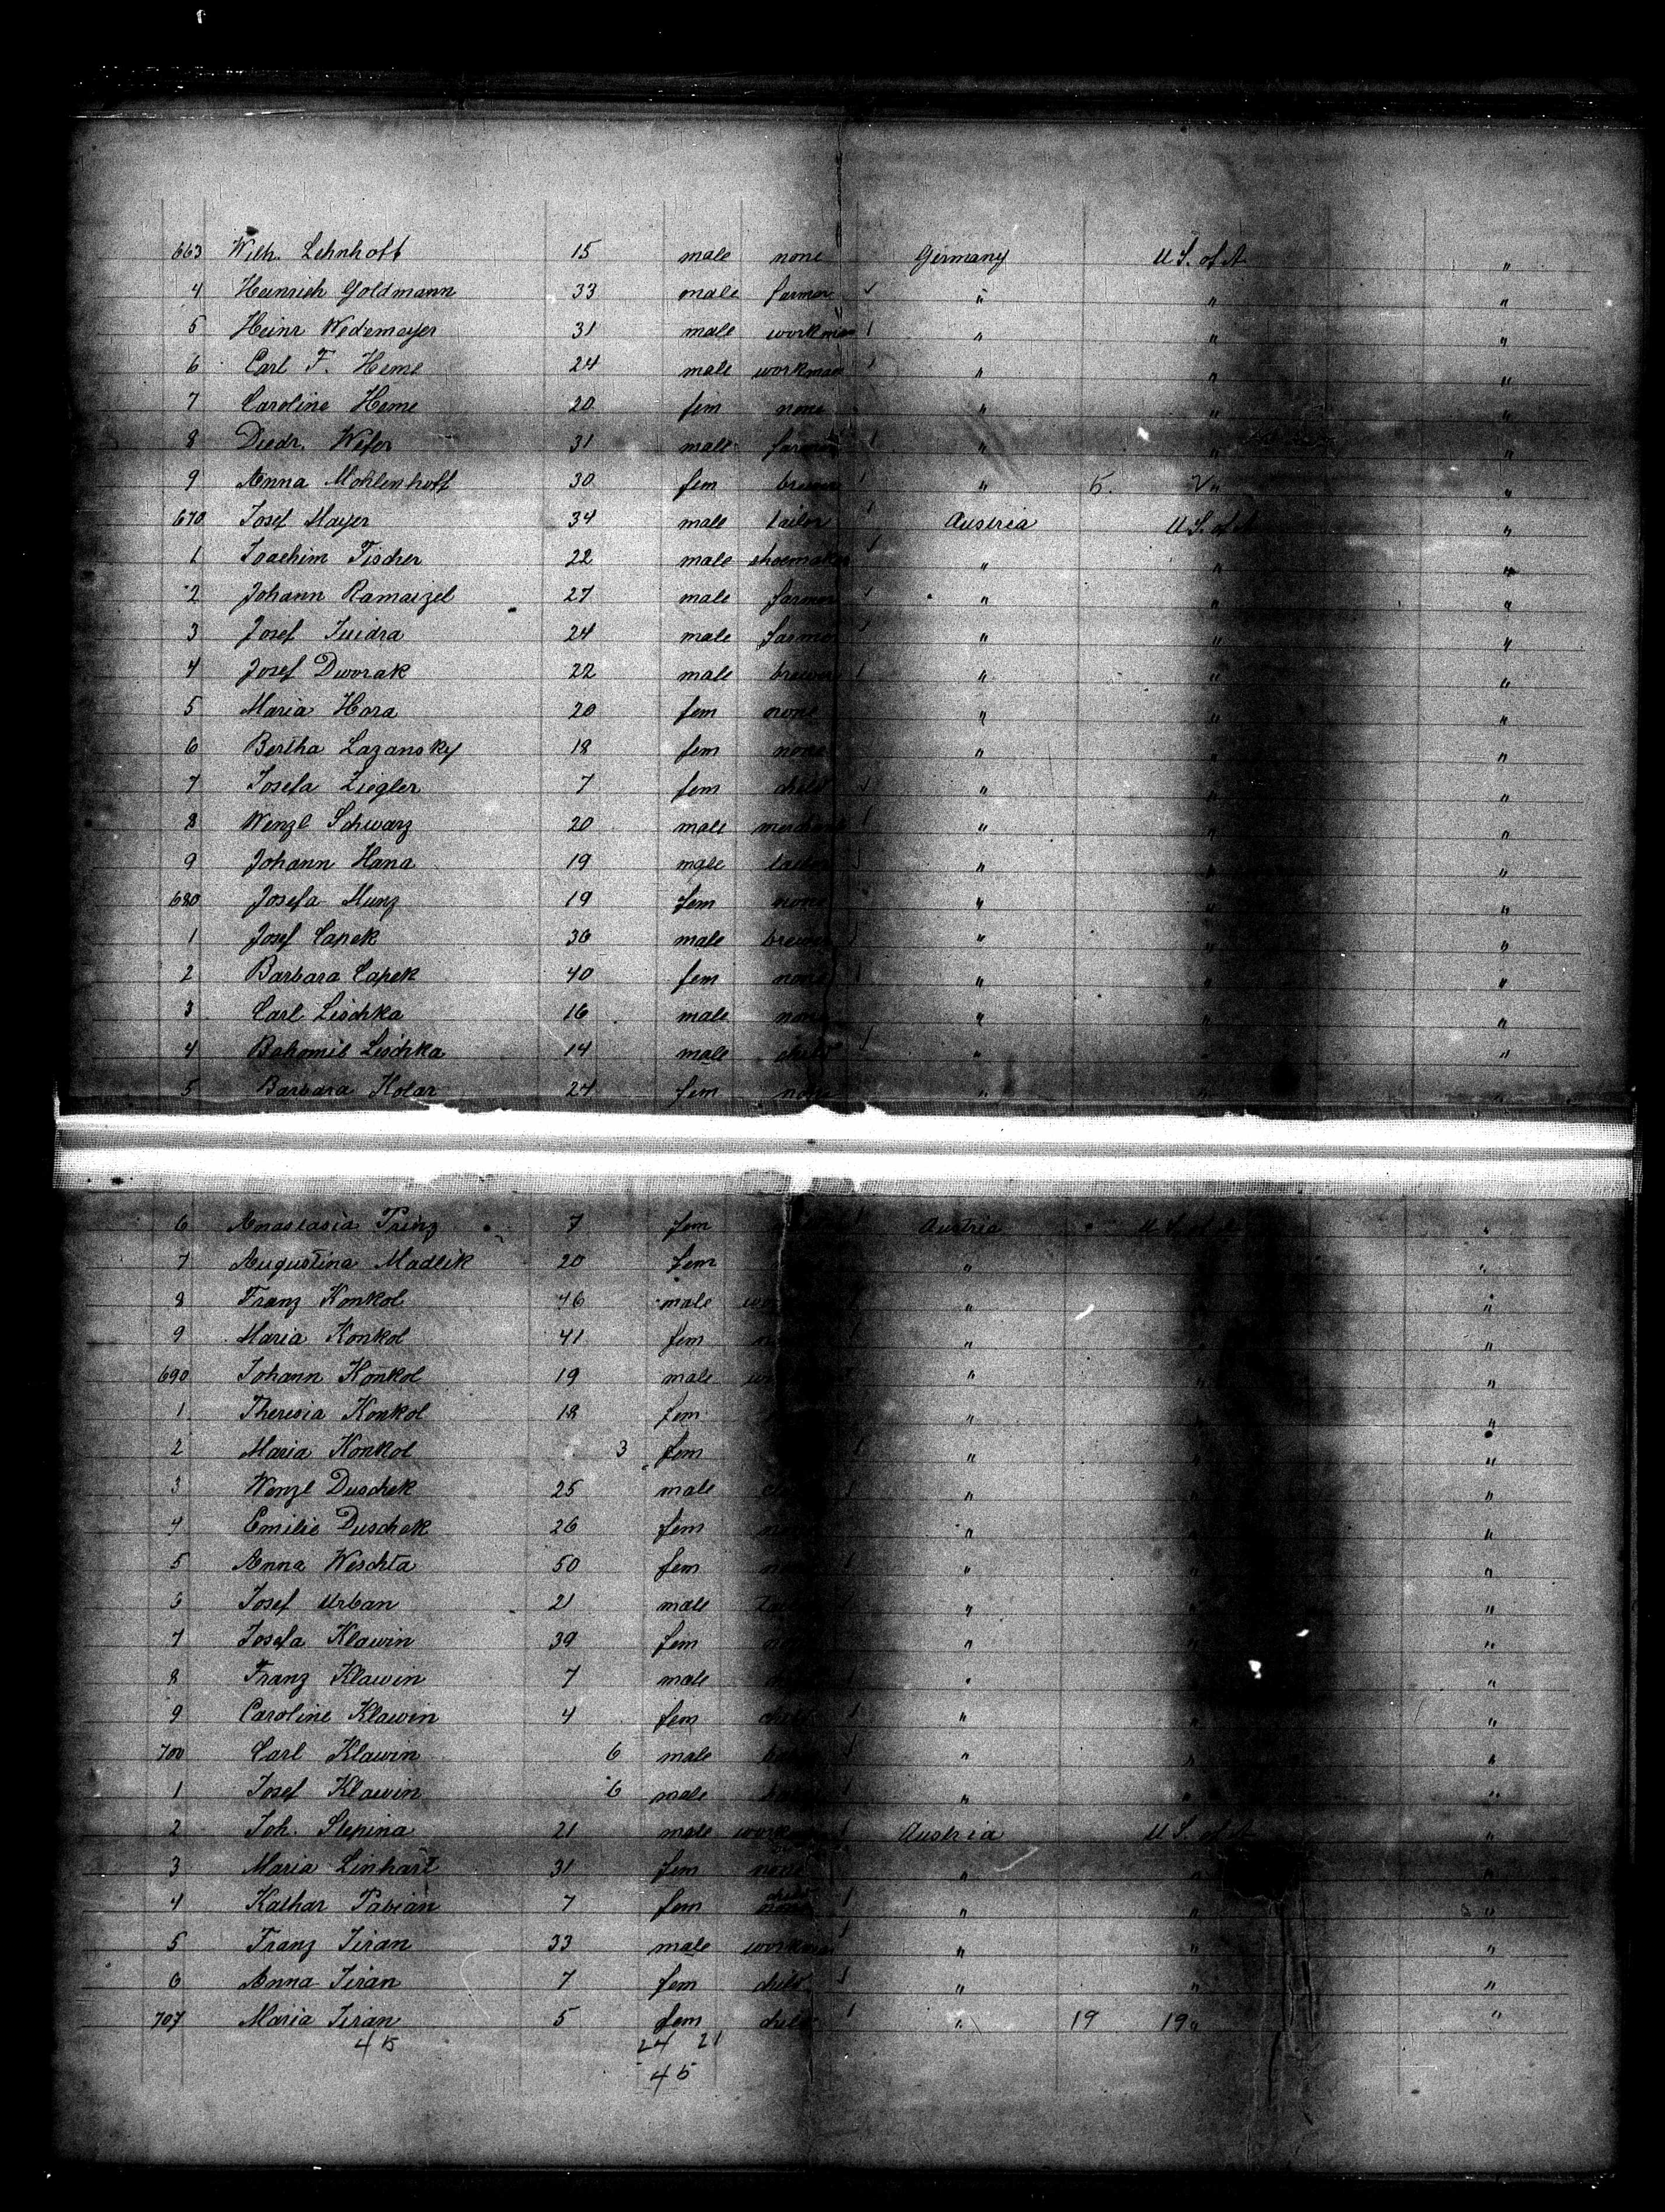 663 Wilh. Lehnhoff 15 male none Germany U S. of A. "
4 Heinrich Goldmann 33 male farmer " " "
5 Heinr Wedemeyer 31 male workman 1 " " "
6 Carl F. Heme 24 male workman 1 " " "
7 Caroline Heme 20 fem none " " "
8 Diedr. Wefer 31 male farmer 1 " " "
9 Anna Mohlenhoff 30 fem brewer 1 " 5. 2 " "
670 Josef Mayer 34 male tailor 1 Austria U S. of A "
1 Joachim Fischer 22 male shoemaker 1 " " "
2 Johann Ramaizel 27 male farmer 1 " " "
3 Josef 24 male farmer 1 " " "
4 Josef Dworak 22 male brewer 1 " " "
5 Maria Hora 20 fem none " " "
6 Bertha Lazansky 18 fem none " " "
7 Josefa Ziegler 7 fem child 1 " " "
8 Wenzl Schwarz 20 male merchant 1 " " "
9 Johann Hana 19 male tailor 1 " " "
680 Josefa Munz 19 fem none " " "
1 Josef Capek 36 male brewer 1 " " "
2 Barbara Capek 40 fem none 1 " " "
3 Carl Lischka 16 male none " " "
4 Bohomil Lischka 14 male child 1 " " "
5 Barbara Kolar 24 fem none " " "
6 Anastasia Prinz 7 fem Austria U S. of A "
7 Augustina Madlik 20 fem " "
8 Franz Konkol 46 male " "
9 Maria Konkol 41 fem " "
690 Johann Konkol 19 male " " "
1 Theresia Konkol 18 fem " "
2 Maria Konkol 3 fem 1 " " "
3 Wenzl Duschek 25 male 1 " " "
4 Emilie Duschek 26 fem " " "
5 Anna Weschta 50 fem 1 " " "
6 Josef Urban 21 male 1 " " "
7 Josefa Klawin 39 fem " " "
8 Franz Klawin 7 male 1 " "
9 Caroline Klawin 4 fem child 1 " " "
700 Carl Klawin 6 male 1 " " "
1 Josef Klawin 6 male 1 " " "
2 Joh. Stepina 21 male workman 1 Austria U S. of A "
3 Maria Linhart 31 fem none " " "
4 Kathar Pabian 7 fem child none 1 " " "
5 Franz Jiran 33 male workman 1 " " "
6 Anna Jiran 7 fem child 1 " " "
707 Maria Jiran 5 fem child 1 " 19 19 " "
45 24 21
45